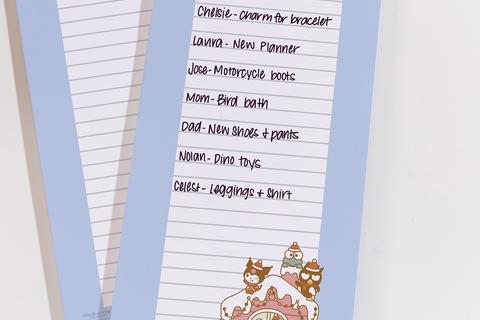 Chelsie - charm for bracelet
Laura - New Planner
Jose - Motorcycle boots
Mom - Bird bath
Dad - New shoes & pants
Nolan - Dino toys
Celest - Leggings + Shirt